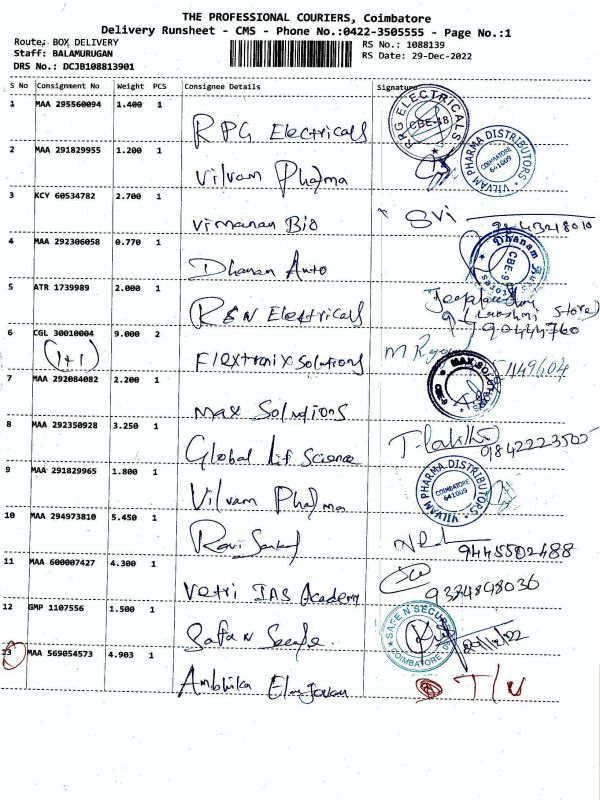 THE PROFESSIONAL COURIERS, Coimbatore
Delivery Runsheet - CMS - Phone No.:0422-3505555 - Page No.:1
Route: BOX DELIVERY
Staff: BALAMURUGAN
DRS No.: DCJB108813901
RS No.: 1088139
RS Date: 29-Dec-2022
S No Consignment No Weight PCS Consignee Details Signature
1 MAA 295560094 1.400 1
RPG Electricals
RPG ELECTRICALS CBE-18
2 MAA 291829955 1.200 1
Vilvam Pharma
VILVAM PHARMA DISTRIBUTORS COIMBATORE 641009
3 KCY 60534782 2.700 1
Vimanan Bio
4 MAA 292306058 0.770 1
Dhanam Auto
Dhanam
5 ATR 1739989 2.000 1
R&N Electricals
6 CGL 30010004 9.000 2
(1+1)
Flextronix Solutions
7 MAA 292084082 2.200 1
Max Solutions
8 MAA 292350928 3.250 1
Global Lif Science
9 MAA 291829965 1.800 1
Vilvam Pharma
VILVAM PHARMA DISTRIBUTORS COIMBATORE 641009
10 MAA 294973810 5.450 1
9445502488
11 MAA 600007427 4.300 1
Vetri IAS Academy
12 GMP 1107556 1.500 1
SAFE N SECURE COIMBATORE
13 MAA 569054573 4.903 1